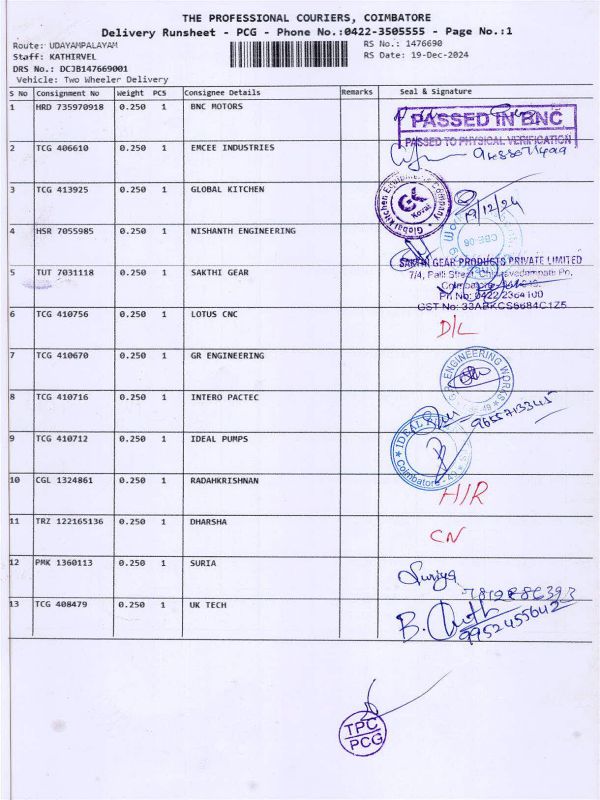 THE PROFESSIONAL COURIERS, COIMBATORE
Delivery Runsheet - PCG - Phone No.:0422-3505555 - Page No.:1
Route: UDAYAMPALAYAM
RS No.: 1476690
Staff: KATHIRVEL
RS Date: 19-Dec-2024
DRS No.: DCJB147669001
Vehicle: Two Wheeler Delivery
S No Consignment No Weight PCS Consignee Details Remarks Seal & Signature
1 HRD 735970918 0.250 1 BNC MOTORS
PASSED IN BNC
PASSED TO PHYSICAL VERIFICATION
2 TCG 406610 0.250 1 EMCEE INDUSTRIES
3 TCG 413925 0.250 1 GLOBAL KITCHEN
Global Kitchen Equipments Company
GK
Kovai
19/12/24
4 HSR 7055985 0.250 1 NISHANTH ENGINEERING
CBE-06
5 TUT 7031118 0.250 1 SAKTHI GEAR
SAKTHI GEAR PRODUCTS PRIVATE LIMITED
7/4, Palli Street, Chinnavedampatti Po,
Coimbatore
Ph No: 0422 2364100
GST No: 33ABKCS6684C1Z5
6 TCG 410756 0.250 1 LOTUS CNC
D/L
7 TCG 410670 0.250 1 GR ENGINEERING
G.R. ENGINEERING WORKS
8 TCG 410716 0.250 1 INTERO PACTEC
9655713345
9 TCG 410712 0.250 1 IDEAL PUMPS
IDEAL
Coimbatore - 49
10 CGL 1324861 0.250 1 RADAHKRISHNAN
H/R
11 TRZ 122165136 0.250 1 DHARSHA
CN
12 PMK 1360113 0.250 1 SURIA
Suriya
13 TCG 408479 0.250 1 UK TECH
B.
9952455642
TPC
PCG